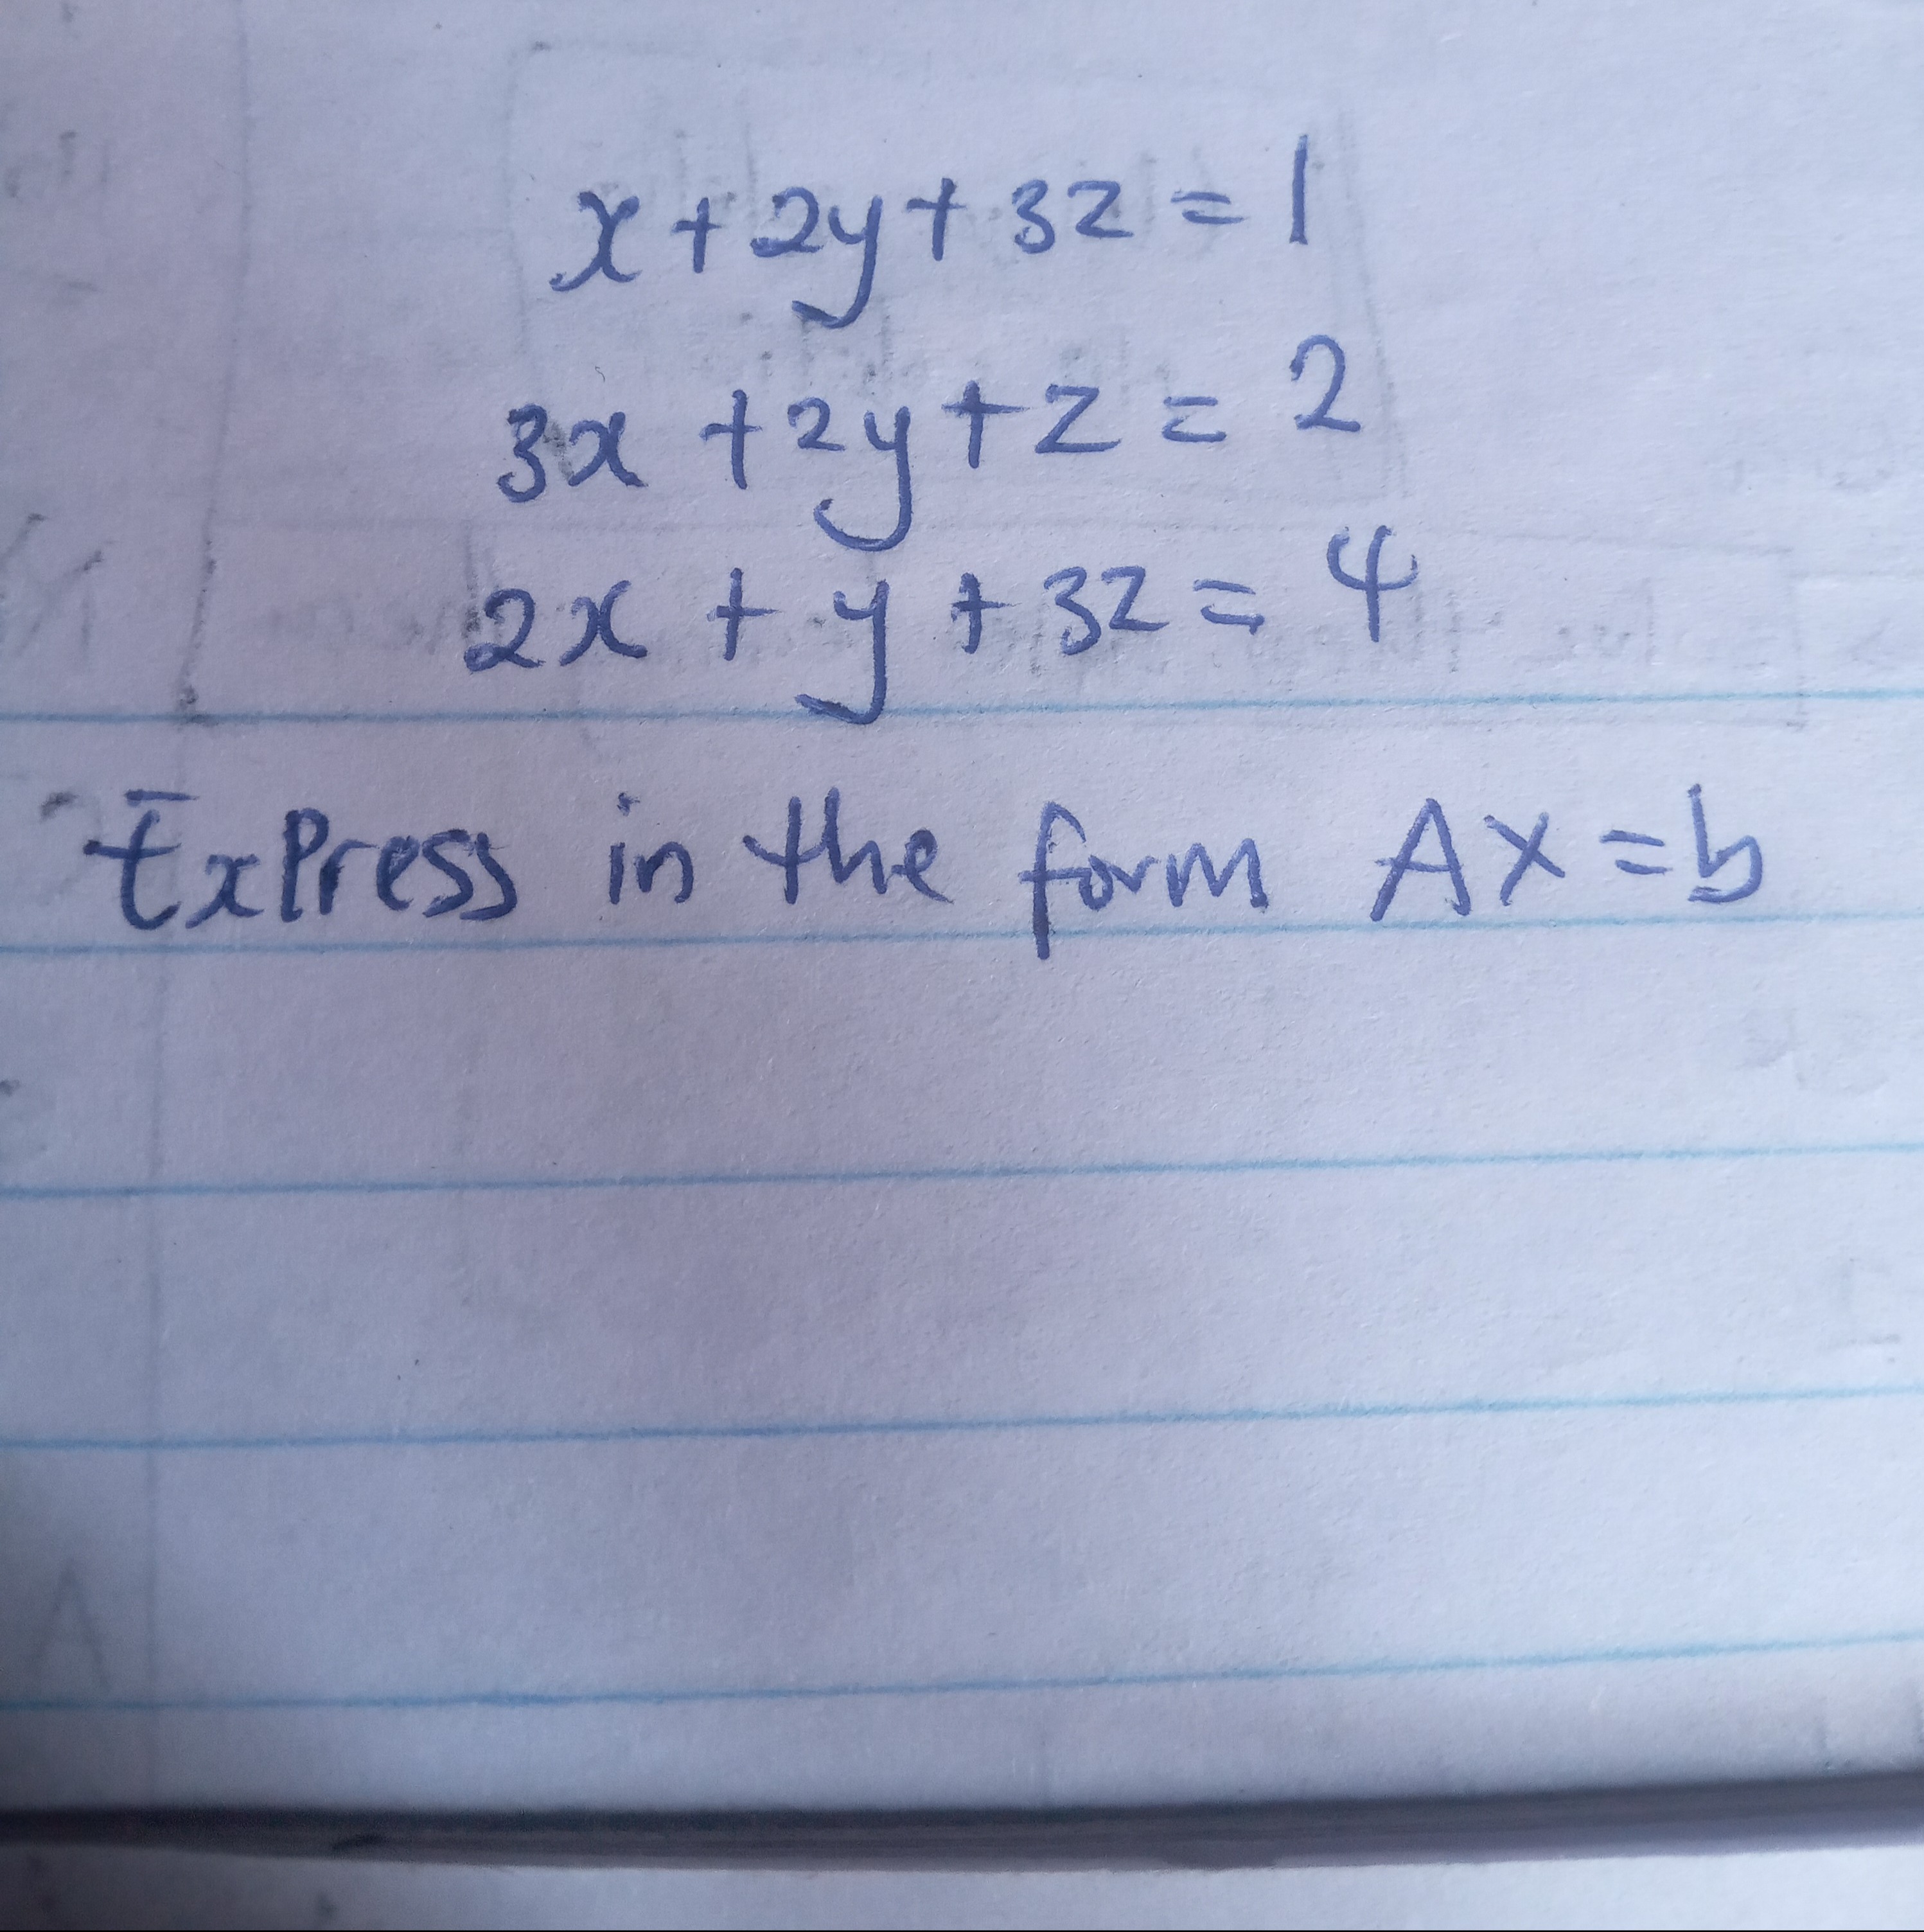 x + 2y + 3z = 1
3x + 2y + z = 2
2x + y + 3z = 4
ExPress in the form AX = b